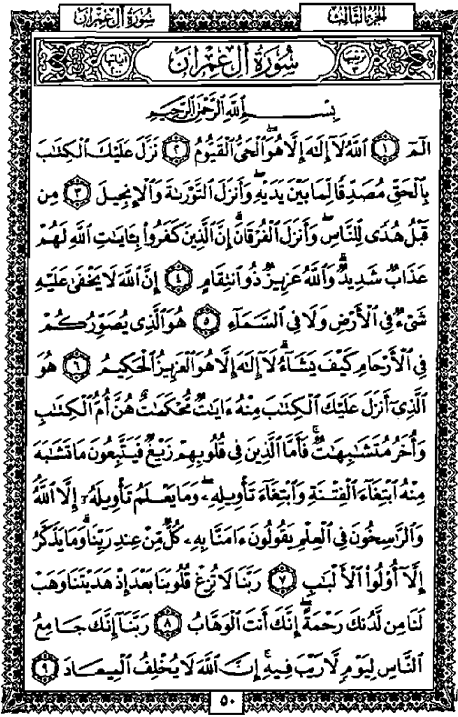 الجزء الثالث
سورة آل عمران
ترتيبها ٣
سُورَةُ آلِ عِمْرَان
آياتها ٢٠٠
بِسْمِ اللَّهِ الرَّحْمَٰنِ الرَّحِيمِ
الٓمٓ ١ اللَّهُ لَآ إِلَٰهَ إِلَّا هُوَ الْحَيُّ الْقَيُّومُ ٢ نَزَّلَ عَلَيْكَ الْكِتَٰبَ
بِالْحَقِّ مُصَدِّقًا لِّمَا بَيْنَ يَدَيْهِ وَأَنزَلَ التَّوْرَىٰةَ وَالْإِنجِيلَ ٣ مِن
قَبْلُ هُدًى لِّلنَّاسِ وَأَنزَلَ الْفُرْقَانَ إِنَّ الَّذِينَ كَفَرُوا بِـَٔايَٰتِ اللَّهِ لَهُمْ
عَذَابٌ شَدِيدٌ وَاللَّهُ عَزِيزٌ ذُو انتِقَامٍ ٤ إِنَّ اللَّهَ لَا يَخْفَىٰ عَلَيْهِ
شَىْءٌ فِى الْأَرْضِ وَلَا فِى السَّمَآءِ ٥ هُوَ الَّذِى يُصَوِّرُكُمْ
فِى الْأَرْحَامِ كَيْفَ يَشَآءُ لَآ إِلَٰهَ إِلَّا هُوَ الْعَزِيزُ الْحَكِيمُ ٦ هُوَ
الَّذِىٓ أَنزَلَ عَلَيْكَ الْكِتَٰبَ مِنْهُ ءَايَٰتٌ مُّحْكَمَٰتٌ هُنَّ أُمُّ الْكِتَٰبِ
وَأُخَرُ مُتَشَٰبِهَٰتٌ فَأَمَّا الَّذِينَ فِى قُلُوبِهِمْ زَيْغٌ فَيَتَّبِعُونَ مَا تَشَٰبَهَ
مِنْهُ ابْتِغَآءَ الْفِتْنَةِ وَابْتِغَآءَ تَأْوِيلِهِۦ وَمَا يَعْلَمُ تَأْوِيلَهُۥٓ إِلَّا اللَّهُ
وَالرَّٰسِخُونَ فِى الْعِلْمِ يَقُولُونَ ءَامَنَّا بِهِۦ كُلٌّ مِّنْ عِندِ رَبِّنَا وَمَا يَذَّكَّرُ
إِلَّآ أُولُوا الْأَلْبَٰبِ ٧ رَبَّنَا لَا تُزِغْ قُلُوبَنَا بَعْدَ إِذْ هَدَيْتَنَا وَهَبْ
لَنَا مِن لَّدُنكَ رَحْمَةً إِنَّكَ أَنتَ الْوَهَّابُ ٨ رَبَّنَآ إِنَّكَ جَامِعُ
النَّاسِ لِيَوْمٍ لَّا رَيْبَ فِيهِ إِنَّ اللَّهَ لَا يُخْلِفُ الْمِيعَادَ ٩
٥٠